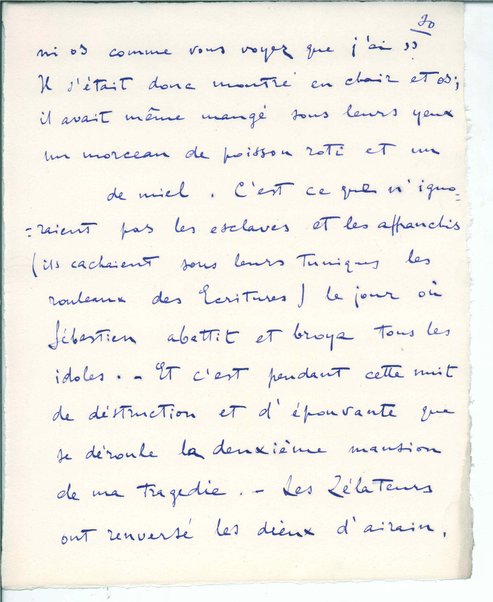 30
ni os comme vous voyez que j'ai »
Il s'était donc montré en chair et os ;
il avait même mangé sous leurs yeux
un morceau de poisson roti et un
de miel . C'est ce que n'igno=
=raient pas les esclaves et les affranchis
( ils cachaient sous leurs tuniques les
rouleaux des Ecritures ) le jour où
Sébastien abattit et broya tous les
idoles . - Et c'est pendant cette nuit
de déstruction et d'épouvante que
se déroule la deuxième mansion
de ma tragedie . - Les Zélateurs
ont renversé les dieux d'airain ,